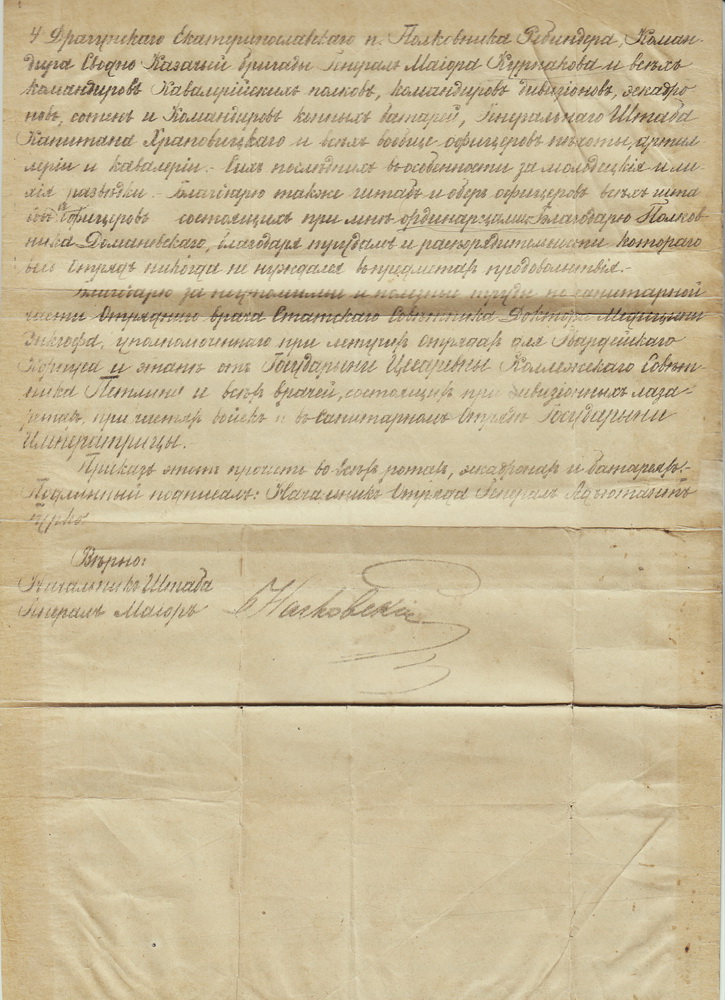 4 Драгунскаго Екатеринославскаго п. Полковника Ребиндера, Коман-
дира Сводно Казачьей бригады Генералъ Маіора Курнакова и всѣхъ
командировъ Кавалерійскихъ полковъ, командировъ дивизіоновъ, эскадро
новъ, сотенъ и Командировъ конныхъ батарей, Генеральнаго Штаба
Капитана Храповицкаго и всѣхъ вообще офицеровъ пѣхоты, артил
леріи и кавалеріи. Сихъ послѣднихъ въ особенности за молодецкія и ли-
хія развѣдки. Благодарю также штабъ и оберъ офицеровъ всѣхъ шта
бовъ и офицеровъ состоящихъ при мнѣ ординарцами. Благодарю Полков-
ника Доманевскаго, благодаря трудамъ и распорядительности котораго
весь Отрядъ никогда не нуждался въ предметахъ продовольствія.-
Благодарю за неутомимые и полезные труды по санитарной
части Отряднаго врача Статскаго Совѣтника Доктора Медицины
уполномоченнаго при летучих Отрядах для Гвардейскаго
Корпуса и этапъ отъ Государыни Цесаревны Коллежскаго Совѣт-
ника Петлина и всѣхъ врачей, состоящихъ при дивизіонныхъ лаза-
ретахъ, при частяхъ войскъ и въ санитарномъ Отрядѣ Государыни
Императрицы.
Приказъ этотъ прочесть во всѣхъ ротахъ, эскадронахъ и батареяхъ.-
Подлинный подписалъ: Начальникъ Отряда Генералъ Адъютантъ
Гурко.
Вѣрно:
Начальникъ Штаба
Генералъ Маіоръ Нагловскій